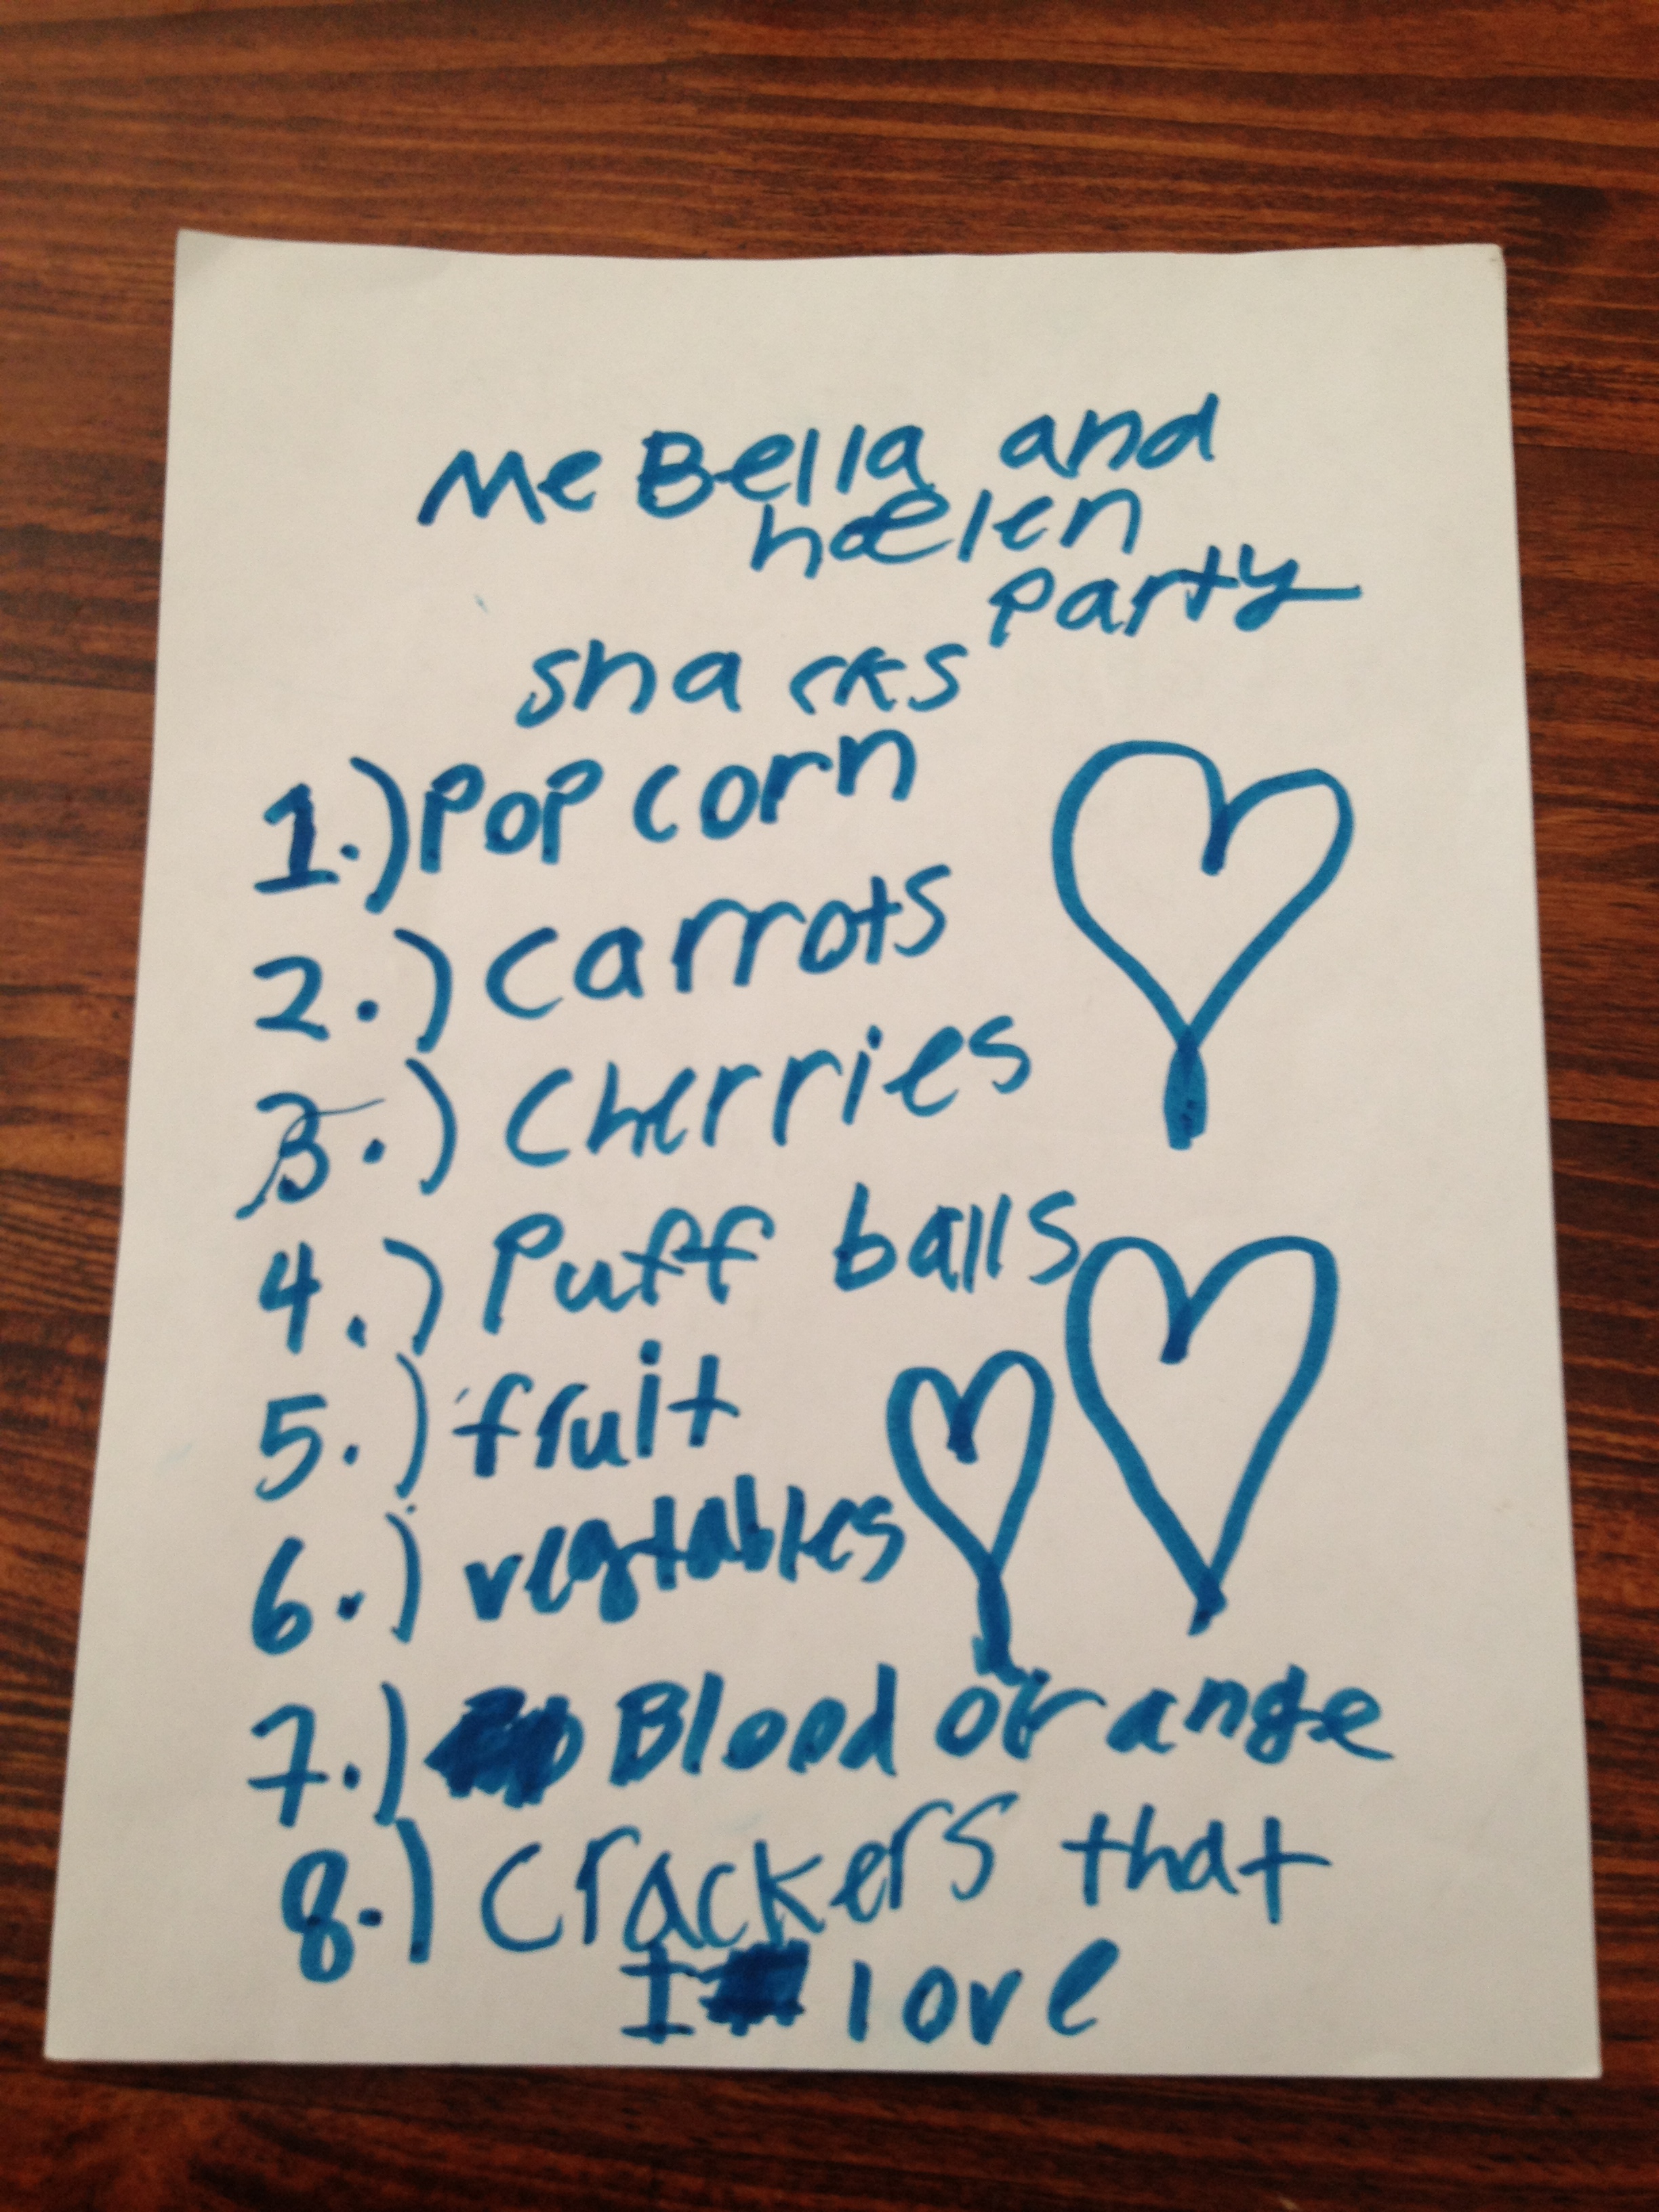 Me Bella and
haelen
Party
snacks
1.) Pop corn
2.) Carrots
3.) Cherries
4.) Puff balls
5.) fruit
6.) vegtables
7.) Blood orange
8.) Crackers that
I love